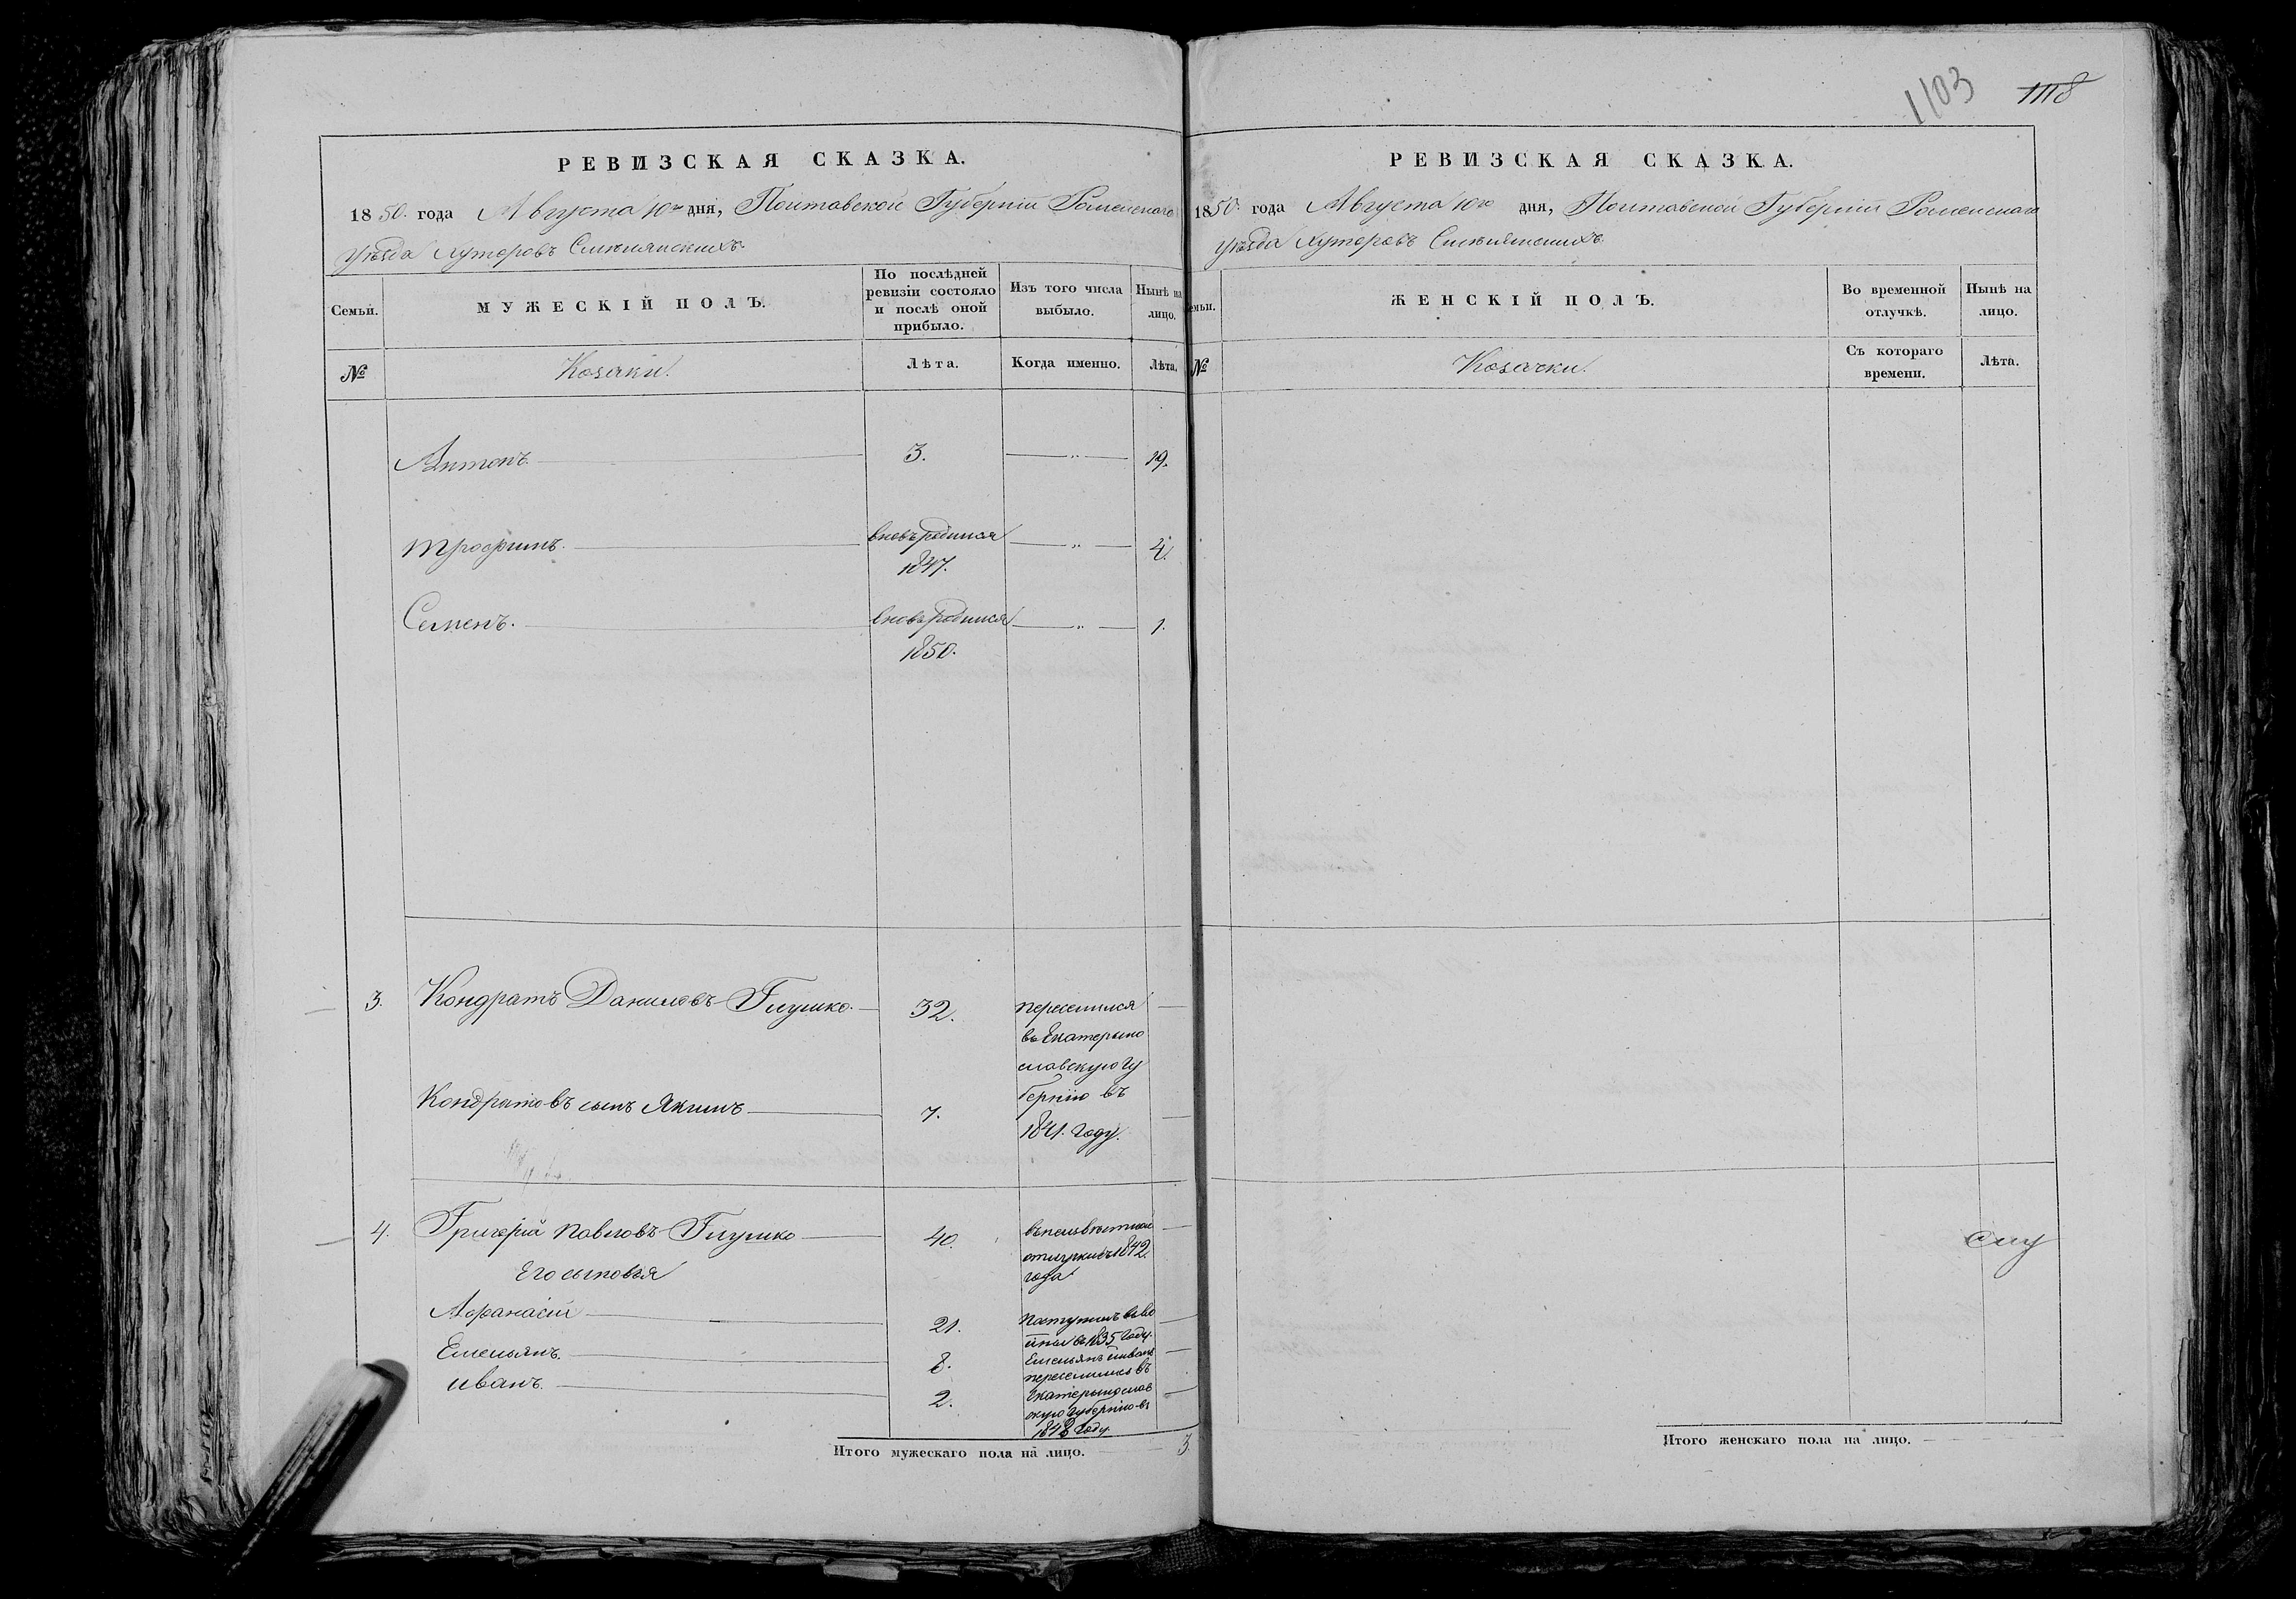 1103 1118
РЕВИЗСКАЯ СКАЗКА.
1850. года Августа 10го дня, Полтавской Губерніи Роменскаго
уѣзда Хуторовъ Смѣлянскихъ.
Семьи.
МУЖЕСКІЙ ПОЛЪ.
По послѣдней
ревизіи состояло
и послѣ оной
прибыло.
Изъ того числа
выбыло.
Нынѣ на
лицо.
№
Козаки.
Лѣта.
Когда именно.
Лѣта.
Антонъ. 3. 19.
Трофимъ. вновьродился 4.
1847.
Семенъ. вновьродился 1.
1850.
3. Кондратъ Даниловъ Глушко. 32. переселился
въ Екатерино
славскую Гу
бернію въ
1841. году.
Кондратовъ сынъ Якимъ 7.
4. Григорій Павловъ Глушко 40. въ
отлучкисъ1842.
года
Его сыновья
Афанасій 21. Поступилъ
въ 1835 году.
Емельянъ. 8. Емельянъ иИванъ
переселились въ
Иванъ. 2. Екатеринослав
скую Губернію въ
1848 году.
Итого мужескаго пола на лицо. 3.
РЕВИЗСКАЯ СКАЗКА.
1850. года Августа 10го дня, Полтавской Губерніи Роменскаго
уѣзда Хуторовъ Смѣлянскихъ.
емьи.
ЖЕНСКІЙ ПОЛЪ.
Во временной
отлучкѣ.
Нынѣ на
лицо.
№
Козачки.
Съ котораго
времени.
Лѣта.
Итого женскаго пола на лицо.